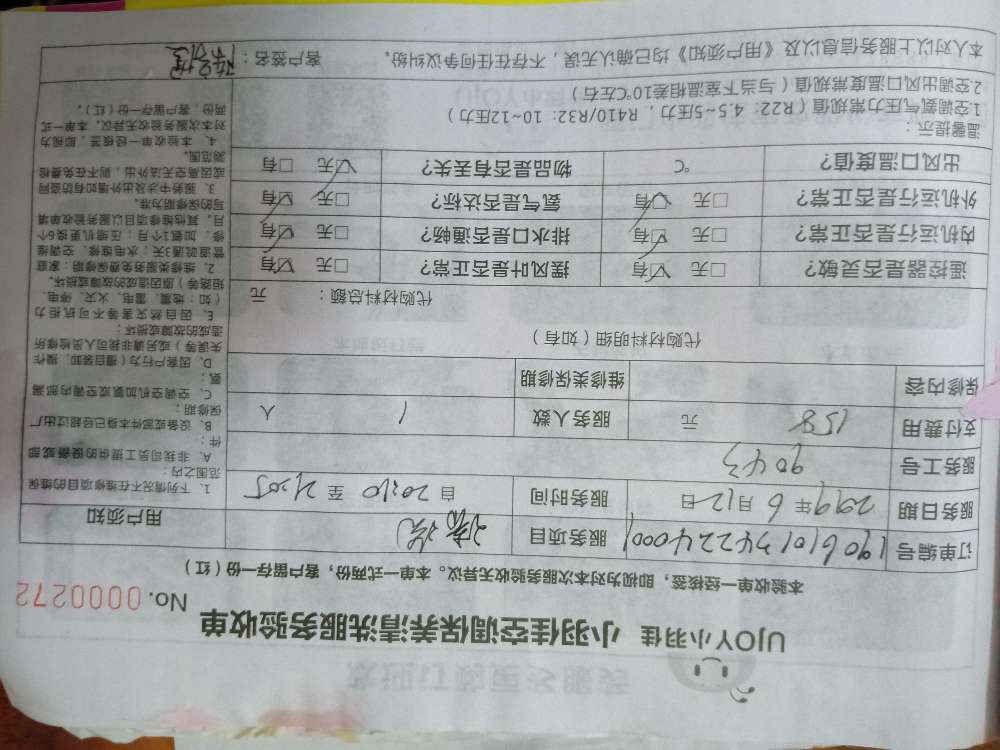 UJOY小羽佳 小羽佳空调保养清洗服务验收单
No. 0000272
本验收单一经核签，即视为对本次服务验收无异议。本单一式两份，客户留存一份（红）
订单编号 1906101342240001 服务项目 清洗
服务日期 2019年6月12日 服务时间 自20:10至21:05
服务工号 9043
支付费用 158 元 服务人数 1 人
保修内容 维修类保修期
代购材料明细（如有）
代购材料总额： 元
遥控器是否灵敏？ ☑有 □无 摆风叶是否正常？ ☑有 □无
内机运行是否正常？ ☑有 □无 排水口是否通畅？ ☑有 □无
外机运行是否正常？ ☑有 □无 氨气是否达标？ ☑有 □无
出风口温度值？ ℃ 物品是否有丢失？ □有 ☑无
温馨提示：
1.空调氨气压力常规值（R22：4.5~5压力，R410/R32：10~12压力）
2.空调出风口温度常规值（与当下室温相差10℃左右）
本人对以上服务信息以及《用户须知》均已确认无误，不存在任何争议纠纷。 客户签名：
用户须知
1、下列情况不在维修项目的维保
范围之内：
A、非我司员工提供的设备或部
件；
B、设备或部件本身已经超过出厂
保修期；
C、空调空机加氨或空调内部漏
氨；
D、因客户行为（擅自装卸、操作
失误等）或另请非我司人员检修所
造成的故障或损坏；
E、因自然灾害等不可抗拒力
（如：地震、雷电、火灾、停电、
短路等）原因造成的故障或损坏。
2、维修类服务免费保修期：家庭
管道疏通3天；水电维修、空调维
修、加氨1个月；压缩机更换6个
月，其他维修项目以服务验收单填
写的保修期为准。
3、服务中涉及出外墙如有防盗网
或因高空无法外出，则不在免费检
测范围。
4、本验收单一经核签，即视为
对本次服务验收无异议，本单一式
两份，客户留存一份（红）。